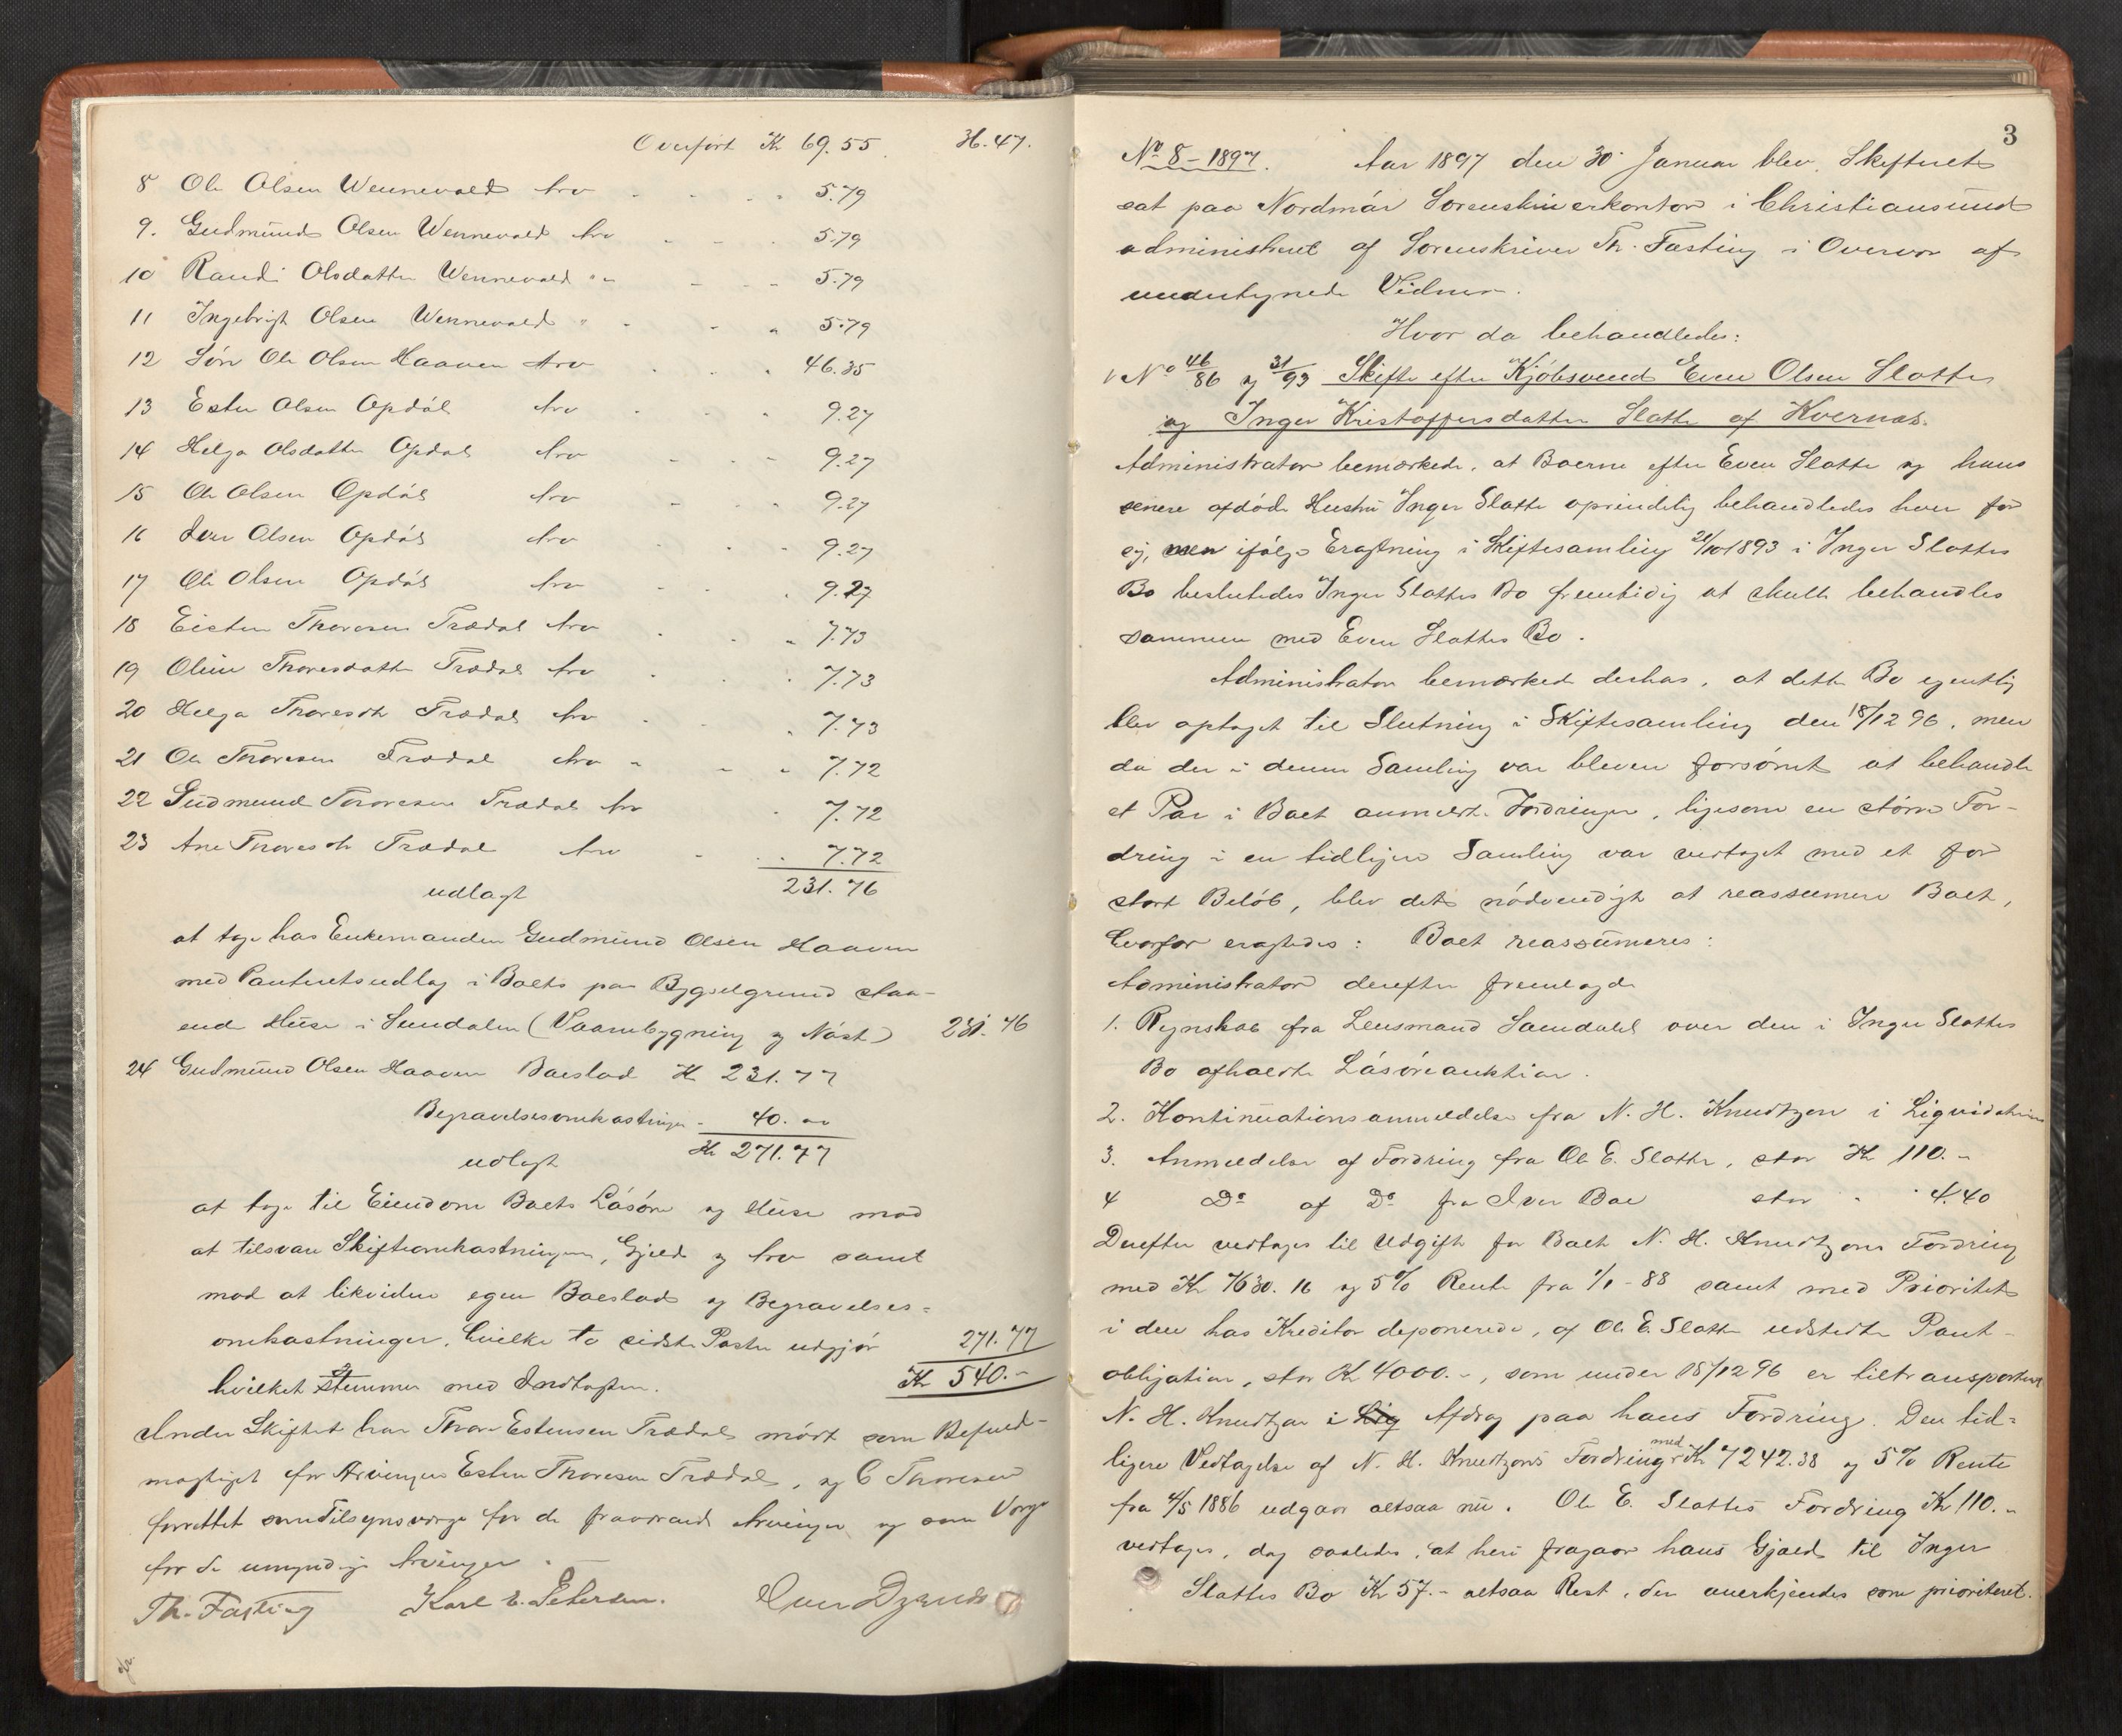 Overført Kr 69.55. 36.47.
8 Ole Olsen Wennevold Arv 5.79
9. Gudmund Olsen Wennevold Arv 5.79
10 Randi Olsdatter Wennevold " 5.79
11 Ingebrigt Olsen Wennevold " 5.79
12 Søn Ole Olsen Haaven Arv 46.35
13 Esten Olsen Opdál Arv 9.27
14 Helga Olsdatter Opdal Arv 9.27
15 Ole Olsen Opdál Arv 9.27
16 Iver Olsen Opdál Arv 9.27
17 Ole Olsen Opdál Arv 9.27
18 Eisten Thoresen Trædal Arv 7.73
19 Oline Thoresdatter Trædal Arv 7.73
20 Helga Thoresdtr Trædal Arv 7.73
21 Ole Thoresen Trædal Arv 7.72
22 Gudmund Thoresen Trædal Arv 7.72
23 Ane Thoresdtr Trædal Arv 7.72
231.76
udlagt
at tage hos Enkemanden Gudmund Olsen Haaven
med Panteretsudlag i Boets paa Bygselgrund staa-
ende Huse i Sundalen (Vaanbygning og Nást) 231.76
24 Gudmund Olsen Haaven Boeslod Kr 231.77
Begravelsesomkostninger - 40. "
Kr 271.77
udlagt
at tage til Eiendom Boets Lósóre og Huse mod
at tilsvare Skifteomkostningerne, Gjeld og Arv samt
mod at likvidere egen Boeslod og Begravelses-
omkostninger, hvilke to sidste Poster udgjór 271.77
hvilket stemmer med Indtægten. Kr 540.-
Under Skiftet har Thore Estensen Trædal mødt som Befuld-
mægtiget for Arvingen Esten Thoresen Trædal, og C Thoresen
forrettet som Tilsynsverge for de fraværende Arvinger og som Verge
for de umyndige Arvinger.
Th. Fasting Karl E. Petersen.
3
No 8 - 1897. Aar 1897 den 30 Januar blev Skifteret
sat paa Nordmór Sorenskriverkontor i Christiansund
administreret af Sorenskriver Th. Fasting i Overvær af
undertegnede Vidner.
Hvor da behandledes:
No 46/86 og 31/93 Skifte efter Kjóbsvend Even Olsen Slatte
og Inger Kristoffersdatter Slatte af Kvernæs.
Administrator bemærkede, at Boerne efter Even Slatte og hans
senere afdóde Hustru Inger Slatte oprindelig behandledes hver for
sig, men ifólge Eragtning i Skiftesamling 21/10 1893 i Inger Slattes
Bo besluttedes Inger Slattes Bo fremtidig at skulle behandles
sammen med Even Slattes Bo.
Administrator bemærkede derhos, at dette Bo egentlig
blev optaget til Slutning i Skiftesamling den 18/12 96, men
da der i denne Samling var bleven forsómt at behandle
et Par i Boet anmeldte Fordringer, ligesom en stórre For-
dring i en tidligere Samling var vedtaget med et for
stort Belób, blev det nódvendigt at reassumere Boet,
hvorfor eragtedes: Boet reassumeres:
Administrator derefter fremlagde
1. Regnskab fra Lensmand Sandahl over den i Inger Slattes
Bo afholdte Lósóreauktion.
2. Kontinuationsanmeldelse fra N. H. Knudtzon i Liqvidation
3. Anmeldelse af Fordring fra Ole E. Slatte, stor Kr 110.-
4 Do af Do fra Iver Boe stor " 4.40
Derefter vedtages til Udgift for Boet N. H. Knudtzons Fordring
med Kr 7630.16 og 5% Rente fra 1/1 - 88 samt med Prioritet
i den hos Kreditor deponerede, af Ole E. Slatte udstedte Pant-
obligation, stor Kr 4000.-, som under 18/12 96 er tiltransporteret
N. H. Knudtzon i Liq Afdrag paa hans Fordring. Den tid-
ligere Vedtagelse af N. H. Knudtzons Fordring med Kr 7242.38 og 5% Rente
fra 4/5 1886 udgaar altsaa nu. Ole E. Slattes Fordring Kr 110.-
vedtages, dog saaledes, at heri fragaar hans Gjæld til Inger
Slattes Bo Kr 57.- altsaa Rest, der anerkjendes som prioriteret.